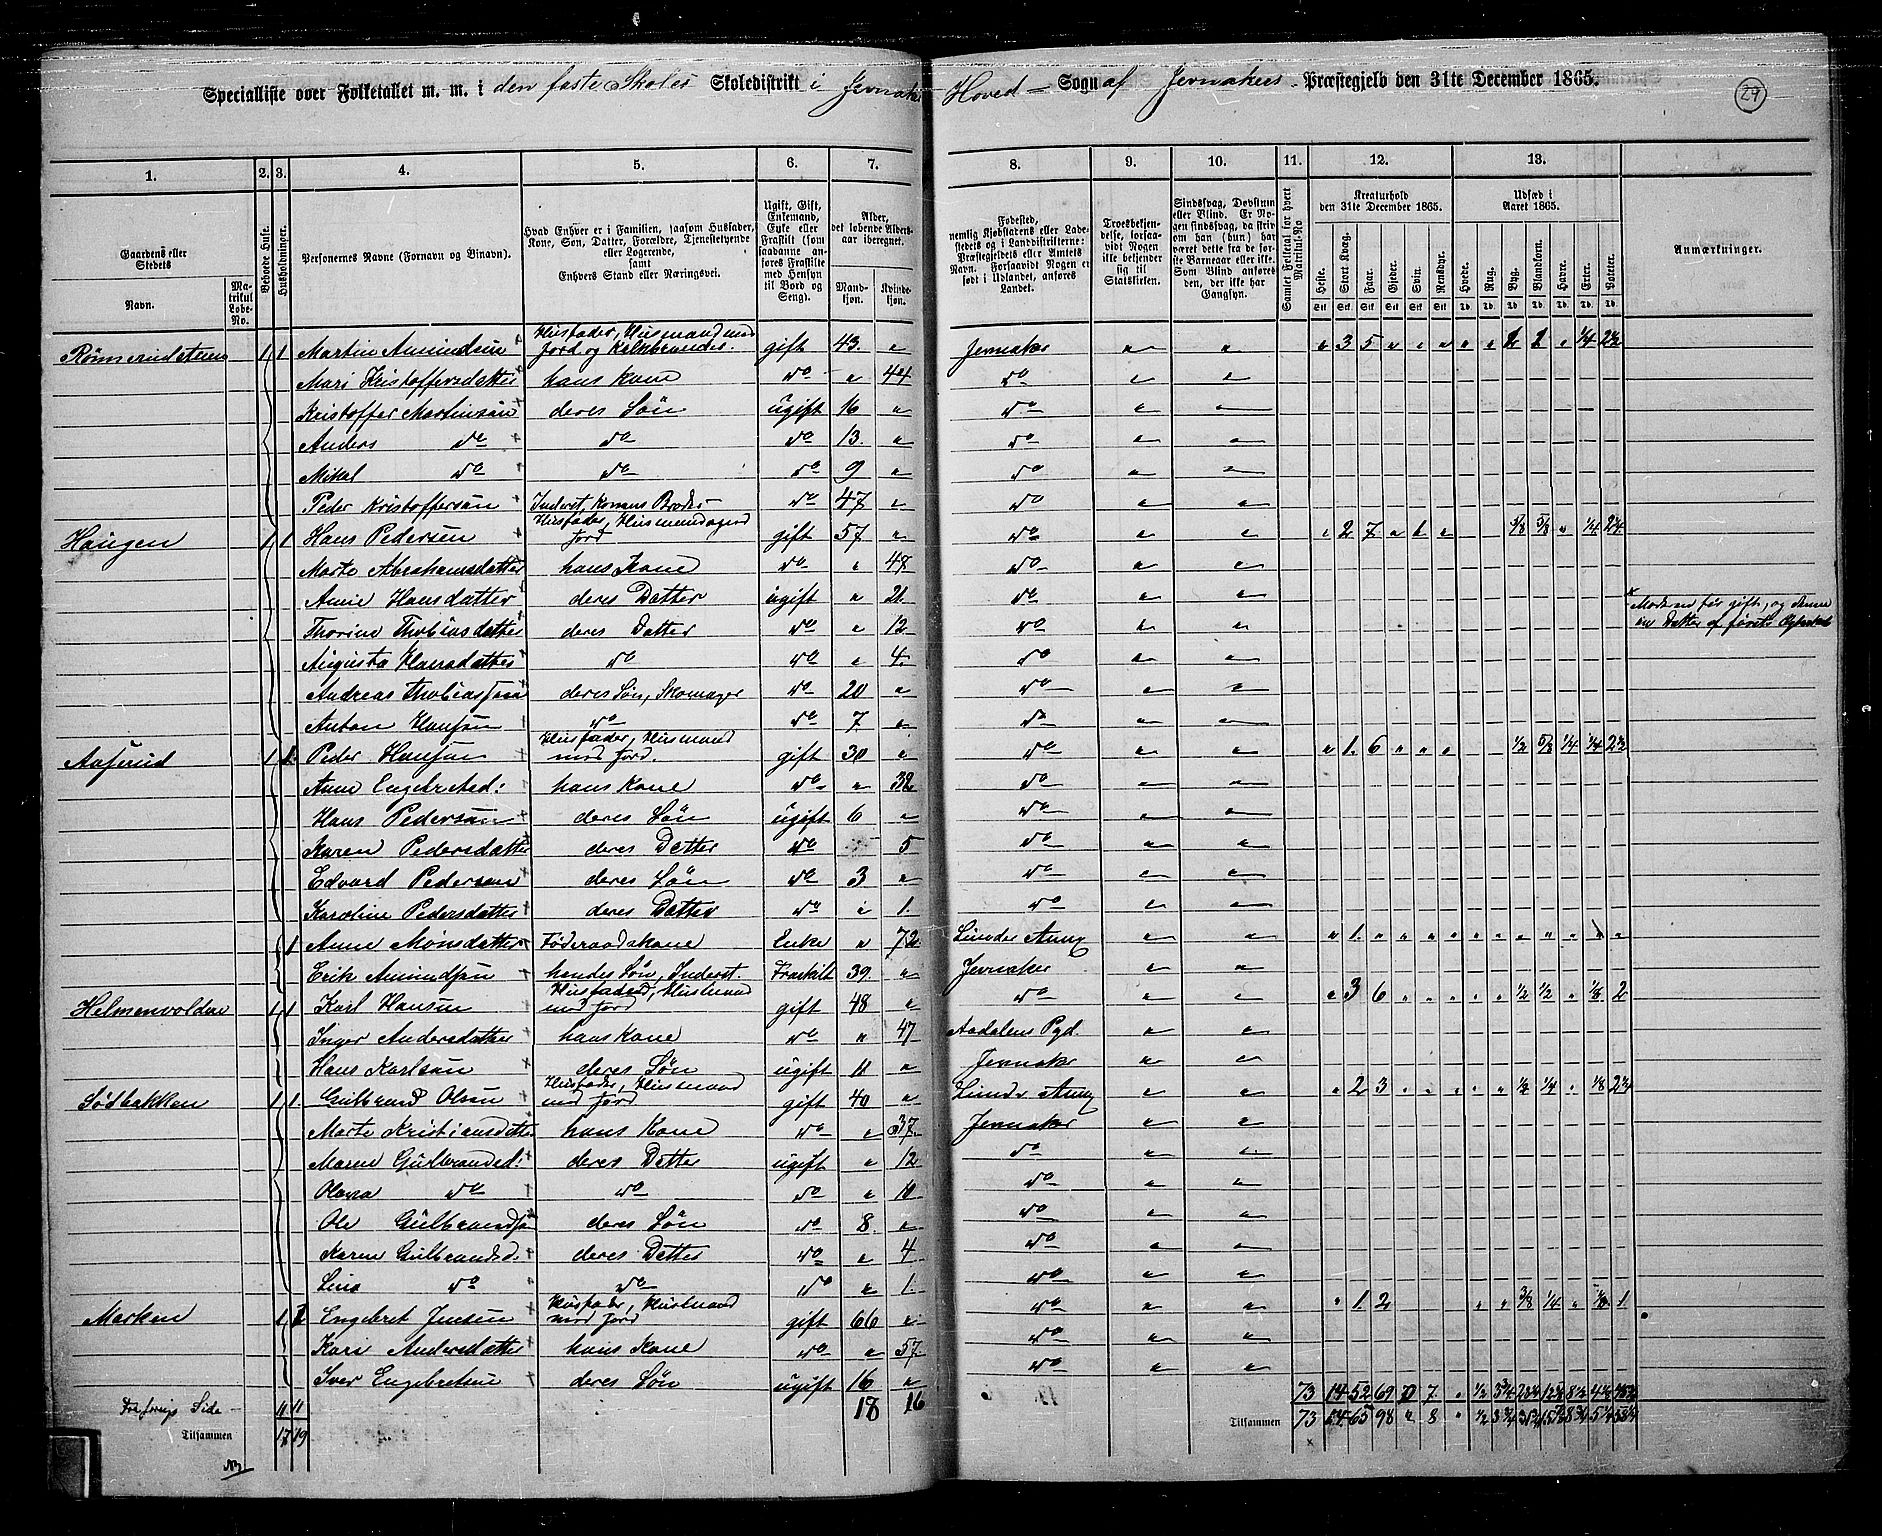 29
Specialliste over Folketallet m. m. i den faste Skoles Skoledistrikt i Jevnaker Hoved- Sogn af Jevnakers Præstegjeld den 31te December 1865.
1. 2. 3. 4. 5. 6. 7. 8. 9. 10. 11. 12. 13.
Gaardens eller Stedets
Navn.
Matrikul Løbe-No.
Beboede Huse.
Husholdninger.
Personernes Navne (Fornavn og Binavn).
Hvad Enhver er i Familien, saasom Husfader, Kone, Søn, Datter, Forældre, Tjenestetyende eller Logerende, samt Enhvers Stand eller Næringsvei.
Ugift, Gift, Enkemand, Enke eller Fraskilt (som saadanne anføres Fraskilte med Hensyn til Bord og Seng).
Alder, det løbende Alders-aar iberegnet.
Mandkjøn. Kvindekjøn.
Fødested, nemlig Kjøbstadens eller Ladestedets og i Landdistrikterne: Præstegjeldets eller Amtets Navn. Forsaavidt Nogen er født i Udlandet, anføres Landet.
Troesbekjendelse, forsaavidt Nogen ikke bekjender sig til Statskirken.
Sindssvag, Døvstum eller Blind. Er Nogen sindssvag, da skrives om han (hun) har været dette fra de første Barneaar eller ikke. Som Blind anføres den, der ikke har Gangsyn.
Samlet Folketal for hvert Matrikul-No
Kreaturhold den 31te December 1865.
Heste. Stort Kvæg. Faar. Gjeder. Svin. Rensdyr.
Udsæd i Aaret 1865.
Hvede. Rug. Byg. Blandkorn. Havre. Erter. Poteter.
Anmærkninger.
1 1 Martin Amundsen Husfader, Husmand med Jord og Kalkbrænder. gift 43. " Jevnaker " " " 3 5 " " " " " 2 2 " 1/4
Mari Kristoffersdatter hans Kone do " 44 do " "
Kristoffer Martinsøn deres Søn ugift 16 " do " "
Anders do do do 13. " do " "
Mikal do do do 9 " do " "
Peder Kristoffersøn Inderst, Konens Broder do 47 " do " "
Haugen 1 1 Hans Pedersen gift 57 " do " " " 2 7 " 1 " 5/8 5/8 " 1/4
Marte Abrahamsdatter hans Kone do " 48 do " "
Anne Hansdatter deres Datter ugift " 21. do " "
Thorine Thobiasdatter deres Datter do " 12 do " "
Augusta Hansdatter do do " 4. do " "
Andreas Thobiassen deres Søn, Skomager do 20 " do " "
Anton Hansen do do 7. " do " "
Aaserud 1 1 Peder Hansen Husfader, Husmand med Jord. gift 30 " do " " " 1. 6 " " " 1/2 5/8 1/4 1/4
Anne Engebretsd: hans Kone do " 32 do " "
Hans Pedersøn deres Søn ugift 6 " do " "
Karen Pedersdatter deres Datter do 5 do " "
Edvard Pedersøn deres Søn do 3 " do " "
Karoline Pedersdatter deres Datter do " 1. do " "
1 Anne Monsdatter Føderaadskone Enke " 72 " " " 1. " " " " " " " " " " "
Erik Amundsen hendes Søn, Inderst. Fraskilt 39. " Jevnaker " "
Helmenvolden 1 1 Karl Hansen Husfader, Husmand med Jord gift 48 " do " " " 3 6 " " " " " 1/2 1/2 " 1/8 2
Inger Andersdatter hans Kone do " 47 Aadalens Pgd. " "
Hans Karlsøn deres Søn ugift 11 " Jevnaker " "
Sødbakken 1 1. Gulbrand Olsen Husfader, Husmand med Jord gift 40 " " " " 2 3 " " " " " 1/2 1/4 " 1/8
Marte Kristiansdatter hans Kone do " 37. Jevnaker " "
Maren Gulbrandsd: deres Datter ugift " 12 do " "
Olava do do do " 10 do " "
Ole Gulbrandsøn deres Søn do 8. " do " "
Karen Gulbrandsd. deres Datter do " 4 do " "
Lina do do do " 1. do " "
Marken 1 1 Engebret Jensen Husfader, Husmand med Jord gift 66 " do " " " 1 2 " " 3/8 1/4 " 1/8 1
Kari Andersdatter hans Kone do " 57 do " "
Iver Engebretsen deres Søn ugift 16 " do " "
Fra forrige Side 11 11 18 16
Tilsammen 17 19
Tilsammen 73